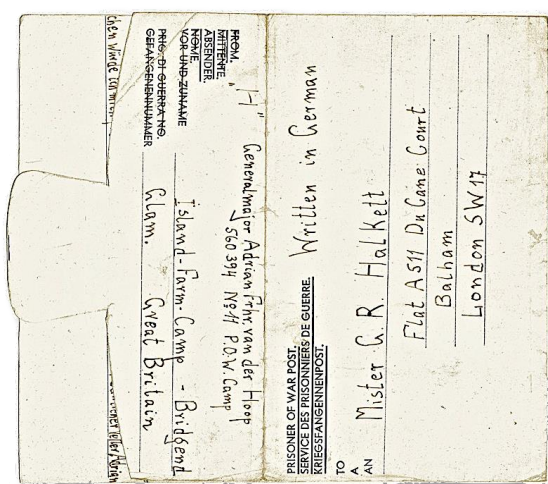 PRISONER OF WAR POST.
SERVICE DES PRISONNIERS DE GUERRE.
KRIEGSFANGENNENPOST.
Written in German
TO
A
AN
Mister G. R. Halkett
Flat A 511 Du Cane Court
Balham
London SW17
FROM.
MITTENTE.
ABSENDER.
NOME.
VOR UND ZUNAME
PRIG. DI GUERRA NO.
GEFANGENENNUMMER
"H"
Generalmajor Adrian Frhr. van der Hoop
560 394 No 11 P.O.W. Camp
Island-Farm-Camp - Bridgend
Glam. Great Britain
chen würde ich
Adrian